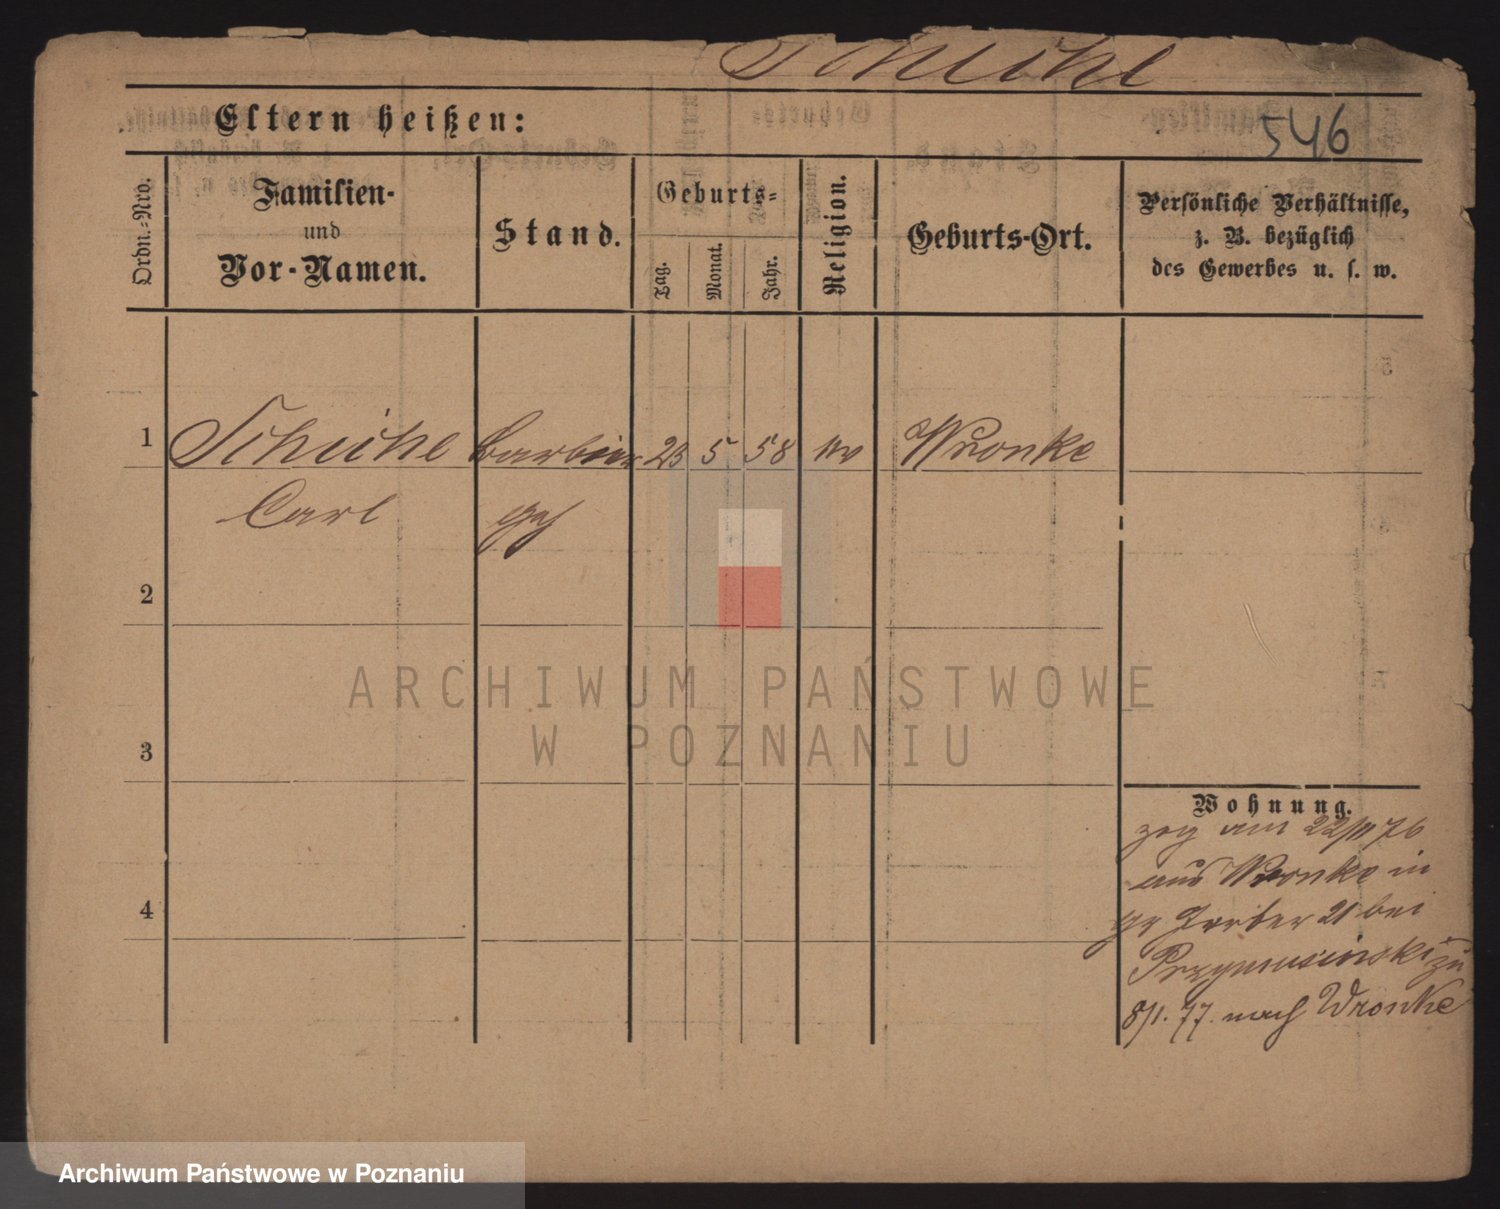 Schichl
Eltern heißen:
546
Ordn.-Nro.
Familien-
und
Vor-Namen.
Stand.
Geburts-
Tag.
Monat.
Jahr.
Religion.
Geburts-Ort.
Persönliche Verhältnisse,
z. B. bezüglich
des Gewerbes u. s. w.
1
Barbier
5
58
Wronke
Carl
2
ARCHIWUM PAŃSTWOWE
W POZNANIU
3
Wohnung.
am 22/11 76
4
aus Wronke in
gr Gerber 21 bei
Przymusinski
8/1. 77. nach Wronke
Archiwum Państwowe w Poznaniu